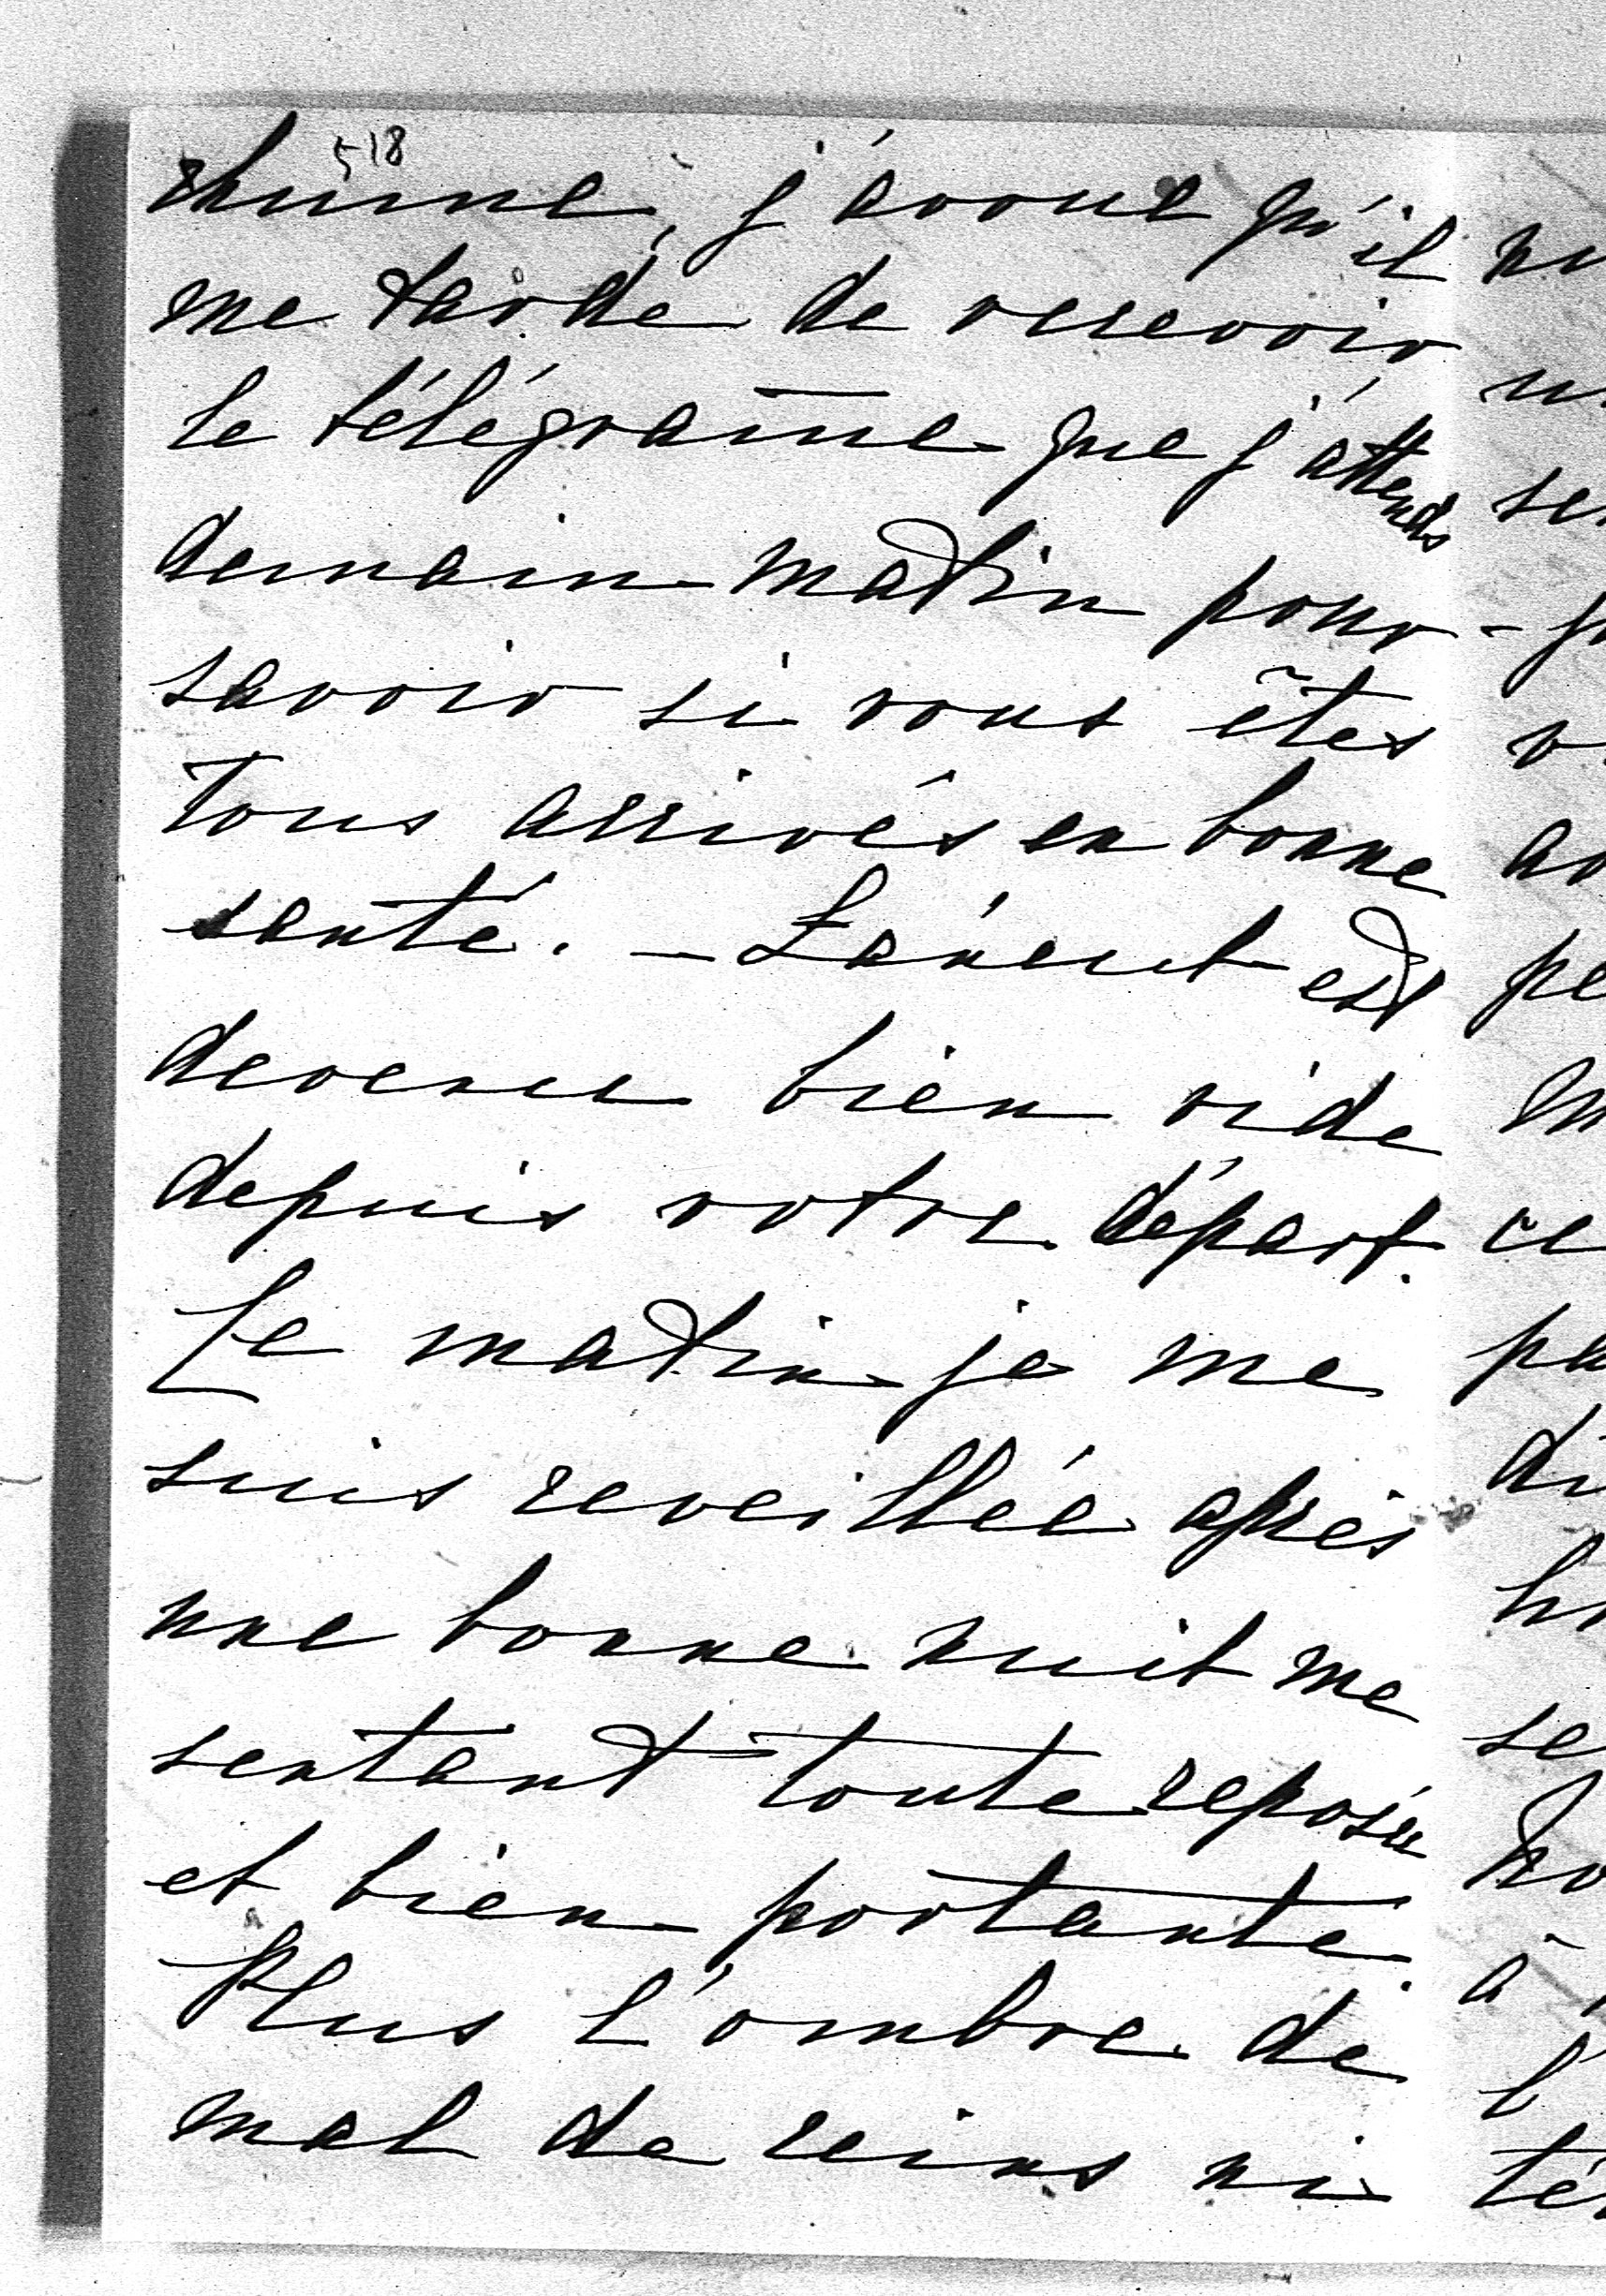 518
rhume, j'avoue qu'il
me tarde de recevoir
le télégram̅e que j'attends
demain matin pour
savoir si vous êtes
tous arrivés en bonne
santé. — est
devenu bien vide
depuis votre départ.
Le matin je me
suis reveillée après
une bonne nuit me
sentant toute reposée
et bien portante.
Plus l'ombre de
mal de reins ni